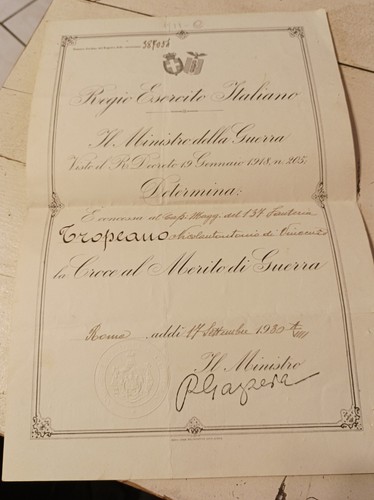 Regio Esercito Italiano
Il Ministro della Guerra
Visto il R. Decreto 19 Gennaio 1918, n. 205,
Determina:
È concessa al Cap. Magg. del 137 Fanteria
Tropeano Nicolantonio di Vincenzo
la Croce al Merito di Guerra
Roma addì 17 Settembre 1930
Il Ministro
P Gazzera